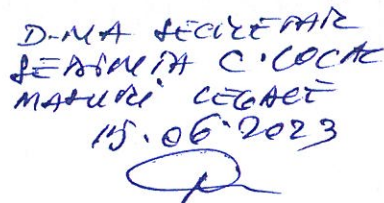 D-NA SECRETAR
ȘEDINȚA C. LOCAL
MASURI LEGALE
15.06.2023